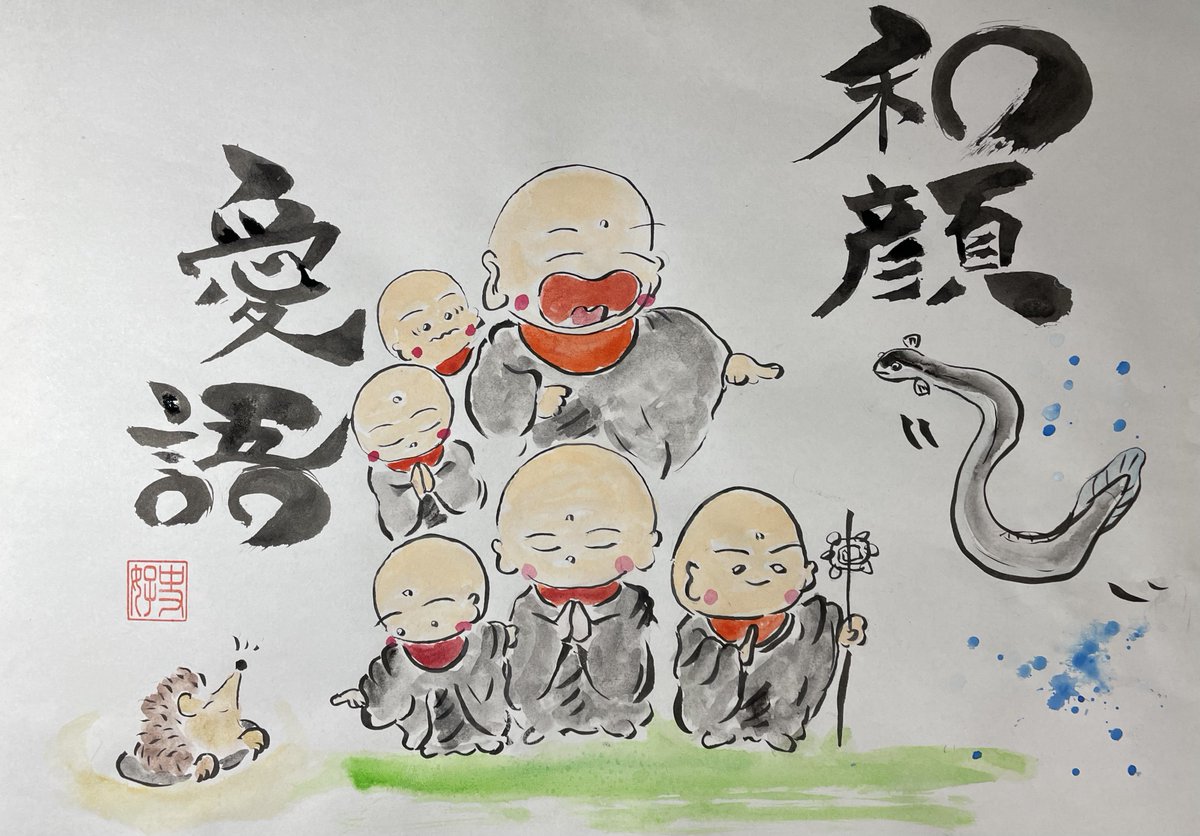 和顔
愛語
好